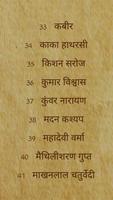 33 कबीर
34 काका हाथरसी
35 किशन सरोज
36 कुमार विश्वास
37 कुंवर नारायण
38 मदन कश्यप
39 महादेवी वर्मा
40 मैथिलीशरण गुप्त
41 माखनलाल चतुर्वेदी